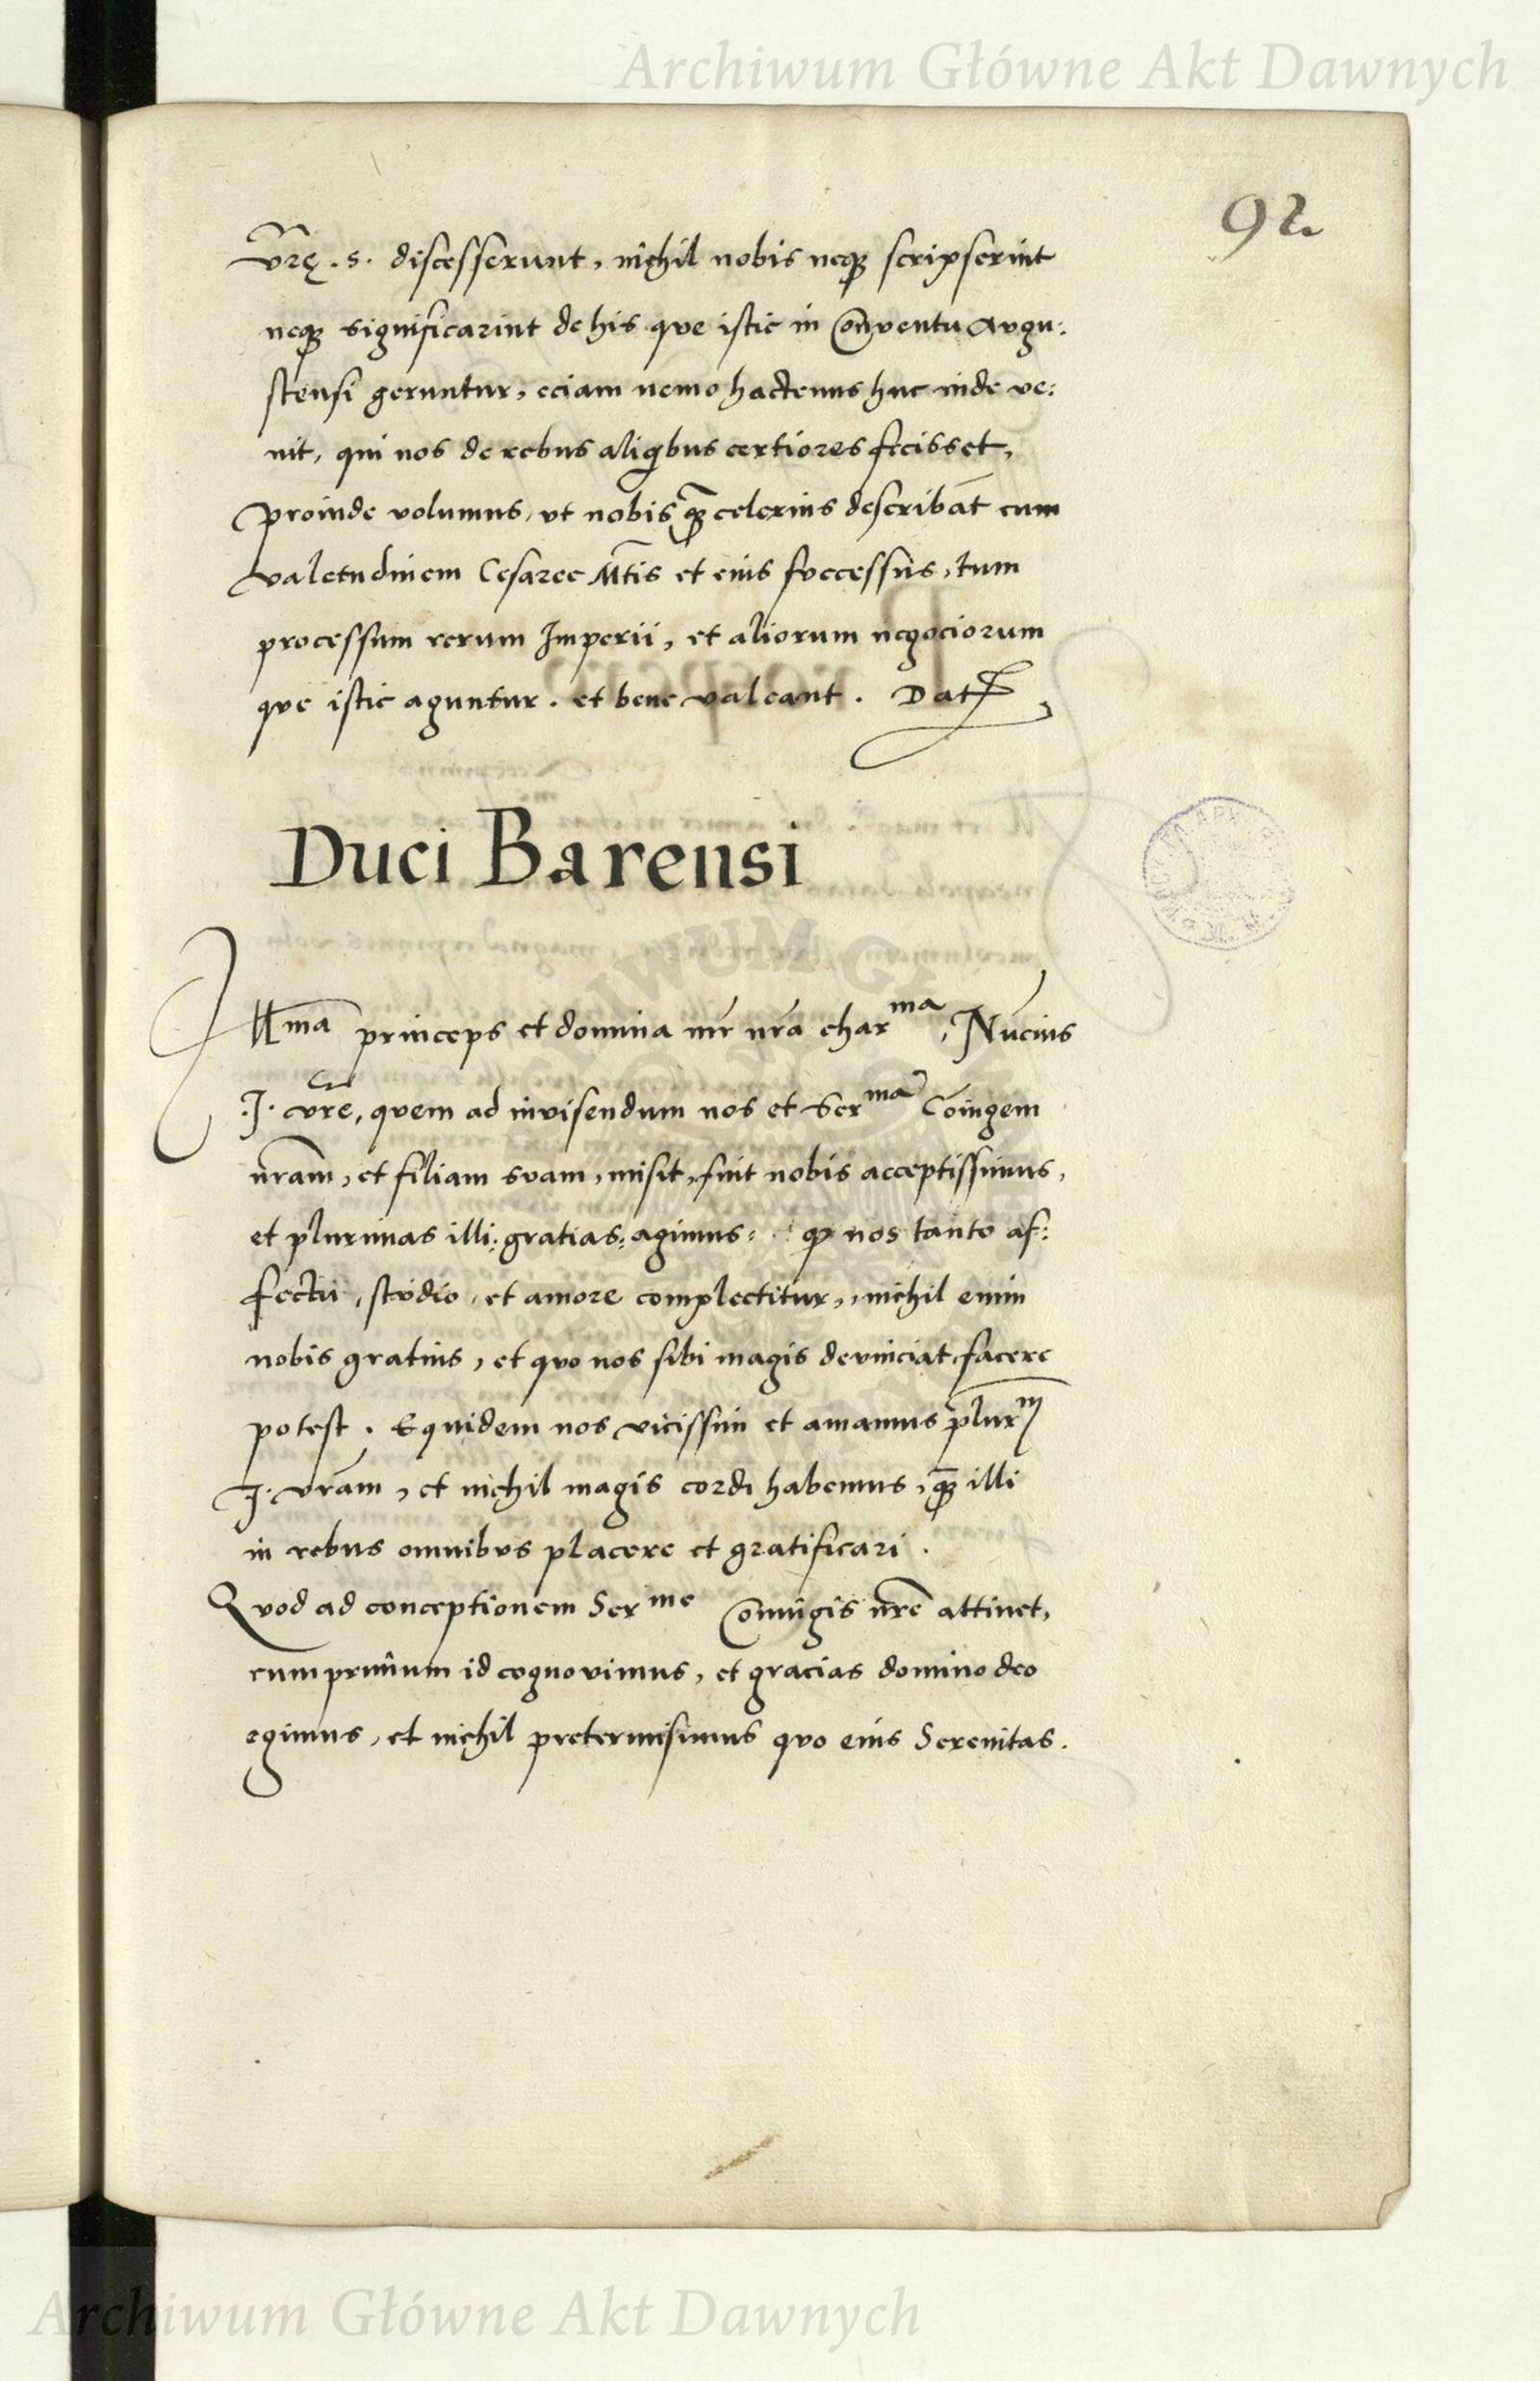 Archiwum Główne Akt Dawnych
92.
vr̃ę .s. discesserunt, nichil nobis neqꝫ scripserint
neqꝫ significarint de his que istic in Conventu Augu:
stensi geruntur, eciam nemo hactenus huc inde ve:
nit, qui nos de rebus aliqbus certiores fecisset,
proinde volumus, vt nobis qꝫ̃ celerius describãt cum
valetudinem Cesaree Mt̃is et eius successus, tum
processum rerum Imperii, et aliorum negociorum
que istic aguntur. et bene valeant. Dat̃
Duci Barensi
Illma princeps et domina mr̃ nr̃a charma, Nũcius
.I. vr̃e, quem ad invisendum nos et Serma Cõiugem
nr̃am, et filiam suam, misit, fuit nobis acceptissimus,
et plurimas illi: gratias: agimus: qꝫ nos tanto af:
fectu, studio, et amore complectitur, nichil enim
nobis gratius, et quo nos sibi magis devinciat, facere
potest. Equidem nos vicissim et amamus plur̃m
I. vr̃am, et nichil magis cordi habemus, qꝫ̃ illi
in rebus omnibus placere et gratificari.
Quod ad conceptionem Serme Coniugis nr̃e attinet,
cum primum id cognovimus, et gracias domino deo
egimus, et nichil pretermisimus quo eius Serenitas.
Archiwum Główne Akt Dawnych